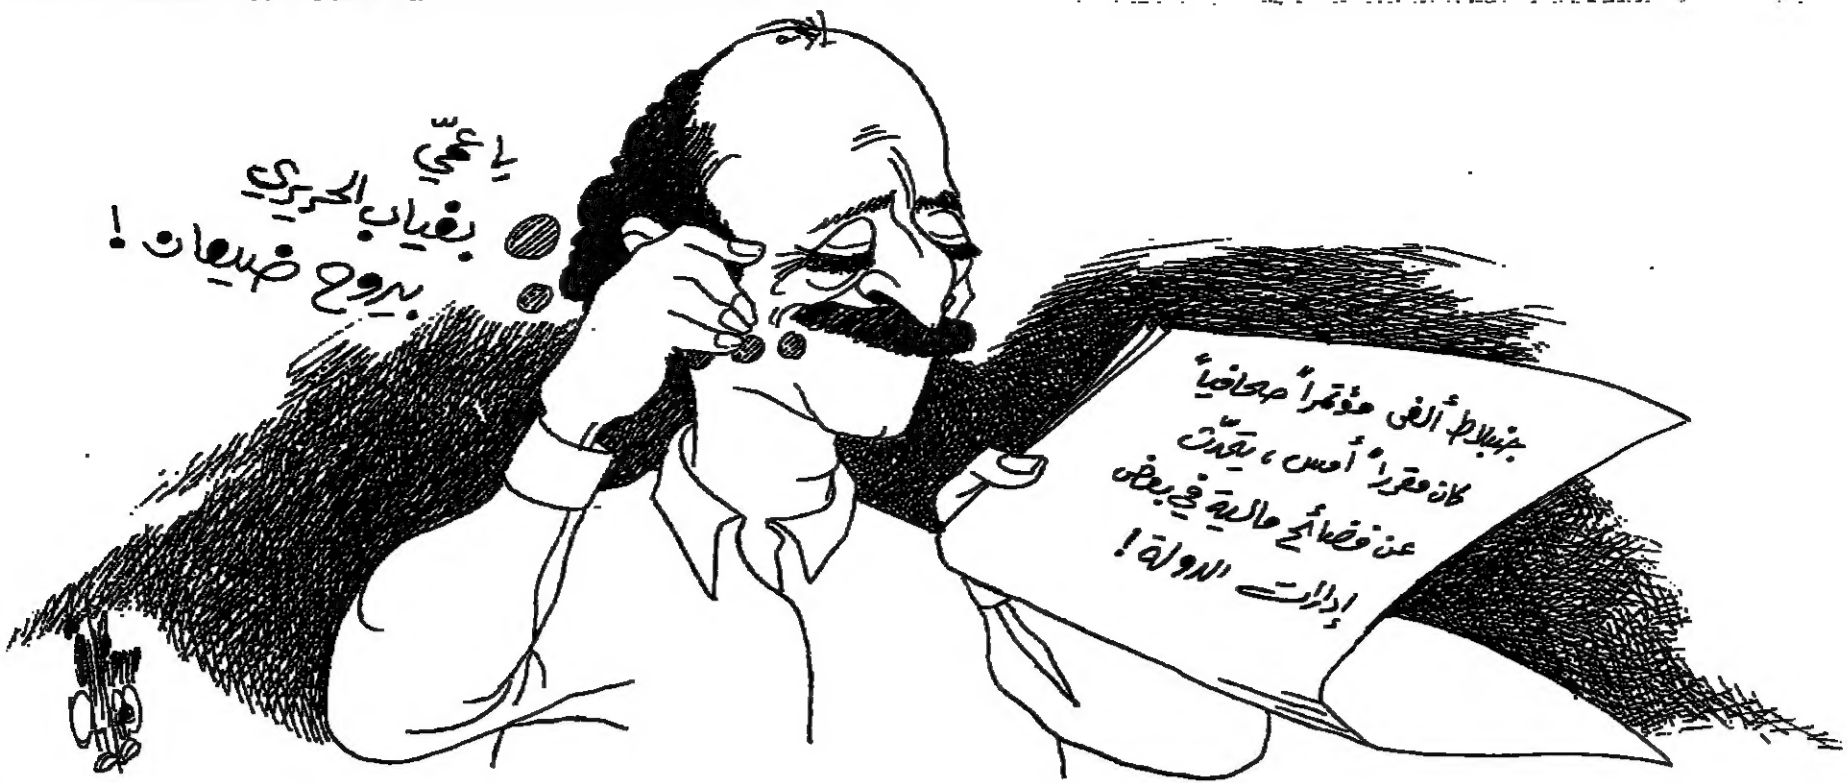 يا عمّي
بغياب الحريري
بيروح ضيعان !
جنبلاط ألغى مؤتمراً صحافياً
كان مقرراً أمس ، يتحدّث
عن فضائح مالية في بعض
إدارات الدولة !